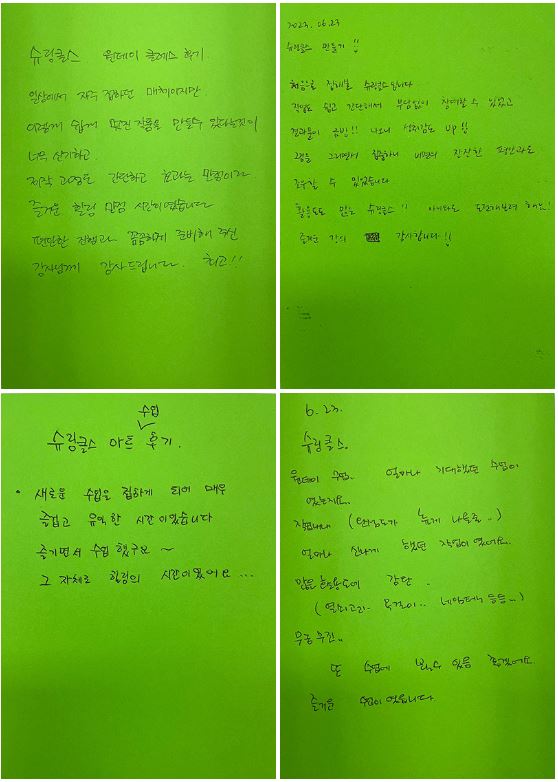 슈링클스 원데이 클레스 후기.
일상에서 자주 접하던 매체이지만
이렇게 쉽게 멋진 작품을 만들수 있다는것이
너무 신기하고
제작 과정도 간단하고 효과는 만점이라
즐거운 힐링 만점 시간이였습니다
편안한 진행과 꼼꼼하게 준비해 주신
강사님께 감사드립니다. 최고!!
2023. 06.23
슈링클스 만들기!!
처음으로 접해본 슈링클스입니다
작업도 쉽고 간단해서 부담없이 참여할 수 있었고
결과물이 금방!! 나오니 성취감도 up!!
그림을 그리면서 집중하니 내면의 잔잔한 평안과도
조우할 수 있었습니다
활용도도 있는 슈링클스!!
즐거운 강의 감사합니다!!
수업
슈링클스 아트 후기.
• 새로운 수업을 접하게 되어 매우
즐겁고 유익한 시간이었습니다
즐기면서 수업 했구요~
그 자체로 힐링의 시간이었어요...
6.23.
슈링클스.
원데이 수업. 얼마나 기대했던 수업이
였는지요..
작업내내 (높게 나올줄..)
얼마나 신나게 했던 작업이였어요..
많은 활용도에 감탄..
(열쇠고리.. 목걸이.. 네임텍 등등...)
무궁무진..
또 수업에 볼수 있음 좋겠어요.
즐거운 수업이였습니다.